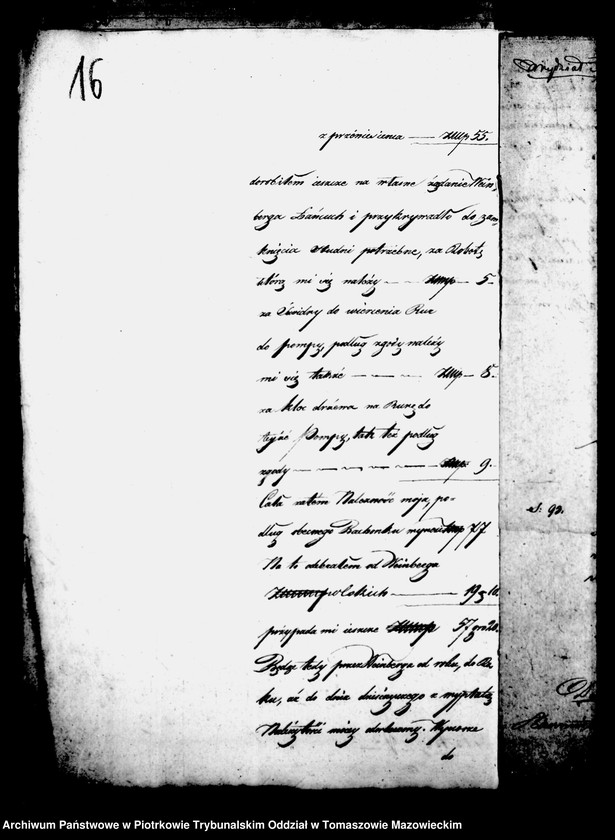 16
z przeniesienia — złtp 55.
dorobiłem jeszcze na własne żądanie Wein,
berga Łańcuch i przykrywadło do zam,
knięcia studni potrzebne, za Robotę
którą mi się należy — — złtp — 5.
za Świdry do wiercenia Rur
do pompy, podług zgody należy
mi się także — — — złtp — 8.
za kloc drzewa na Rurę do
tejże Pompy, tak też podług
zgody — — — złtp 9.
Cała zatem Należność moja, po=
dług obecnego Rachunku wynosi złtp 77
Na to odebrałem od Weinberga
polskich — 19 g 10.
przypada mi jeszcze 57 gro 20.
Będąc tedy przez Weinberga od roku, do Ro
ku, aż do dnia dzisiejszego z wypłatą
Należytości mojej Wynoszę
do
Wydział
S. 93.
Archiwum Państwowe w Piotrkowie Trybunalskim Oddział w Tomaszowie Mazowieckim